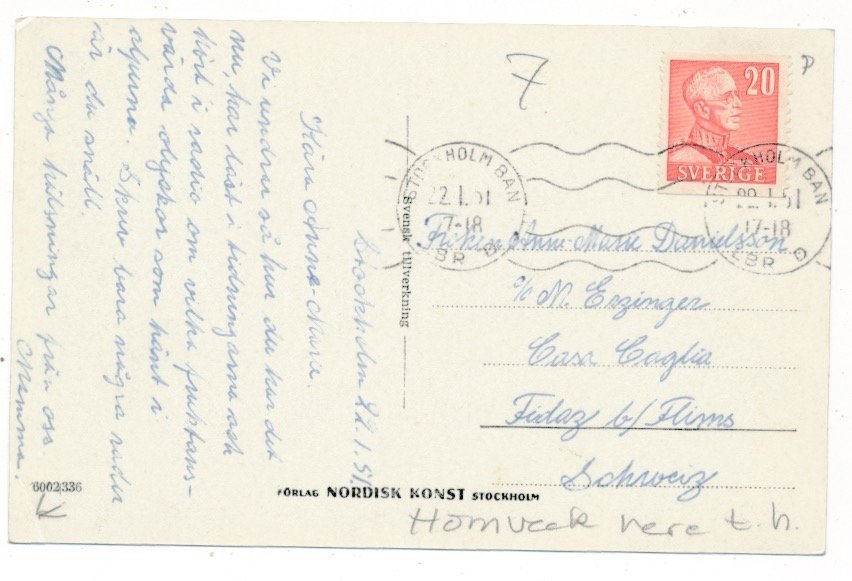 Stockholm 22.1.51
Kära Anne-Marie.
Vi undrar så hur du har det
nu, har läst i tidningarna och
hört i radio om vilka fruktans-
värda olyckor som hänt i
alperna. Skriv bara några rader
är du snäll.
Många hälsningar från oss.
Mamma.
7
P
20
SVERIGE
STOCKHOLM BAN
22.1.51
17-18
LBR D
STOCKHOLM BAN
22.1.51
17-18
LBR D
Svensk tillverkning
Fröken Ann-Marie Danielsson
c/o N. Erzinger
Casa Caglia
Fidaz b/Flims
Schweiz
6002336
FÖRLAG NORDISK KONST STOCKHOLM
Hörnveck nere t.h.